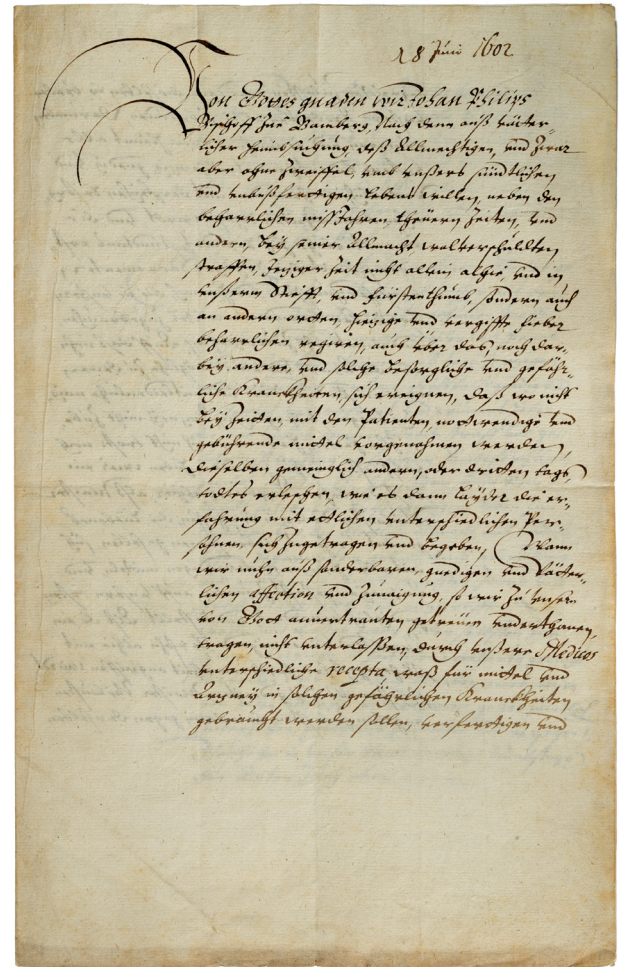 18 Juni 1602
Von Gottes gnaden wir Johan Philips
Bischoff zue Bamberg, Nach dem auß vätter-
licher heimbsuchung, deß Allmechtigen, vnd zwar
aber ohne zweiffel, vmb vnsers sündtlichen
vnd vnbußfertigen lebens willen, neben den
beharrlichen mißJahren, theüern Zeiten, vnd
andern, bey seiner Allmacht wolverschuldten
straffen, Jeziger Zeit nicht allein alhie, vnd in
vnserm Stifft, vnd fürstenthumb, sondern auch
an andern orten, hizige vnd vergiffte fieber
beharrlichen regiren, auch vber das, noch dar-
bey andere, vnd solche besorgliche vnd gefähr-
liche Kranckheiten, sich ereignen, daß wo nicht
bey Zeitten, mit den Patienten, nottwendige vnd
gebührende mittel vorgenohmen werden,
dieselben gemeinglich andern, oder dritten tags,
todtes erleschen, wie es dann layder die er-
fahrung mit ettlichen vnterschiedlichen Per-
sohnen, sich zugetragen vnd begeben, Wann
wir nuhn auß sonderbaren, gnedigen vnd Vätter-
lichen affection vnd zunaigung, so wir zu vnsern
von Gott anuertrauten getreuen vnderthanen,
tragen, nicht vnterlassen, durch vnsere Medicos
vnterschiedliche recepta, waß für mittel vnd
Arzney in solchen gefährlichen Kranckheiten
gebraucht werden sollen, verfertigen vnd